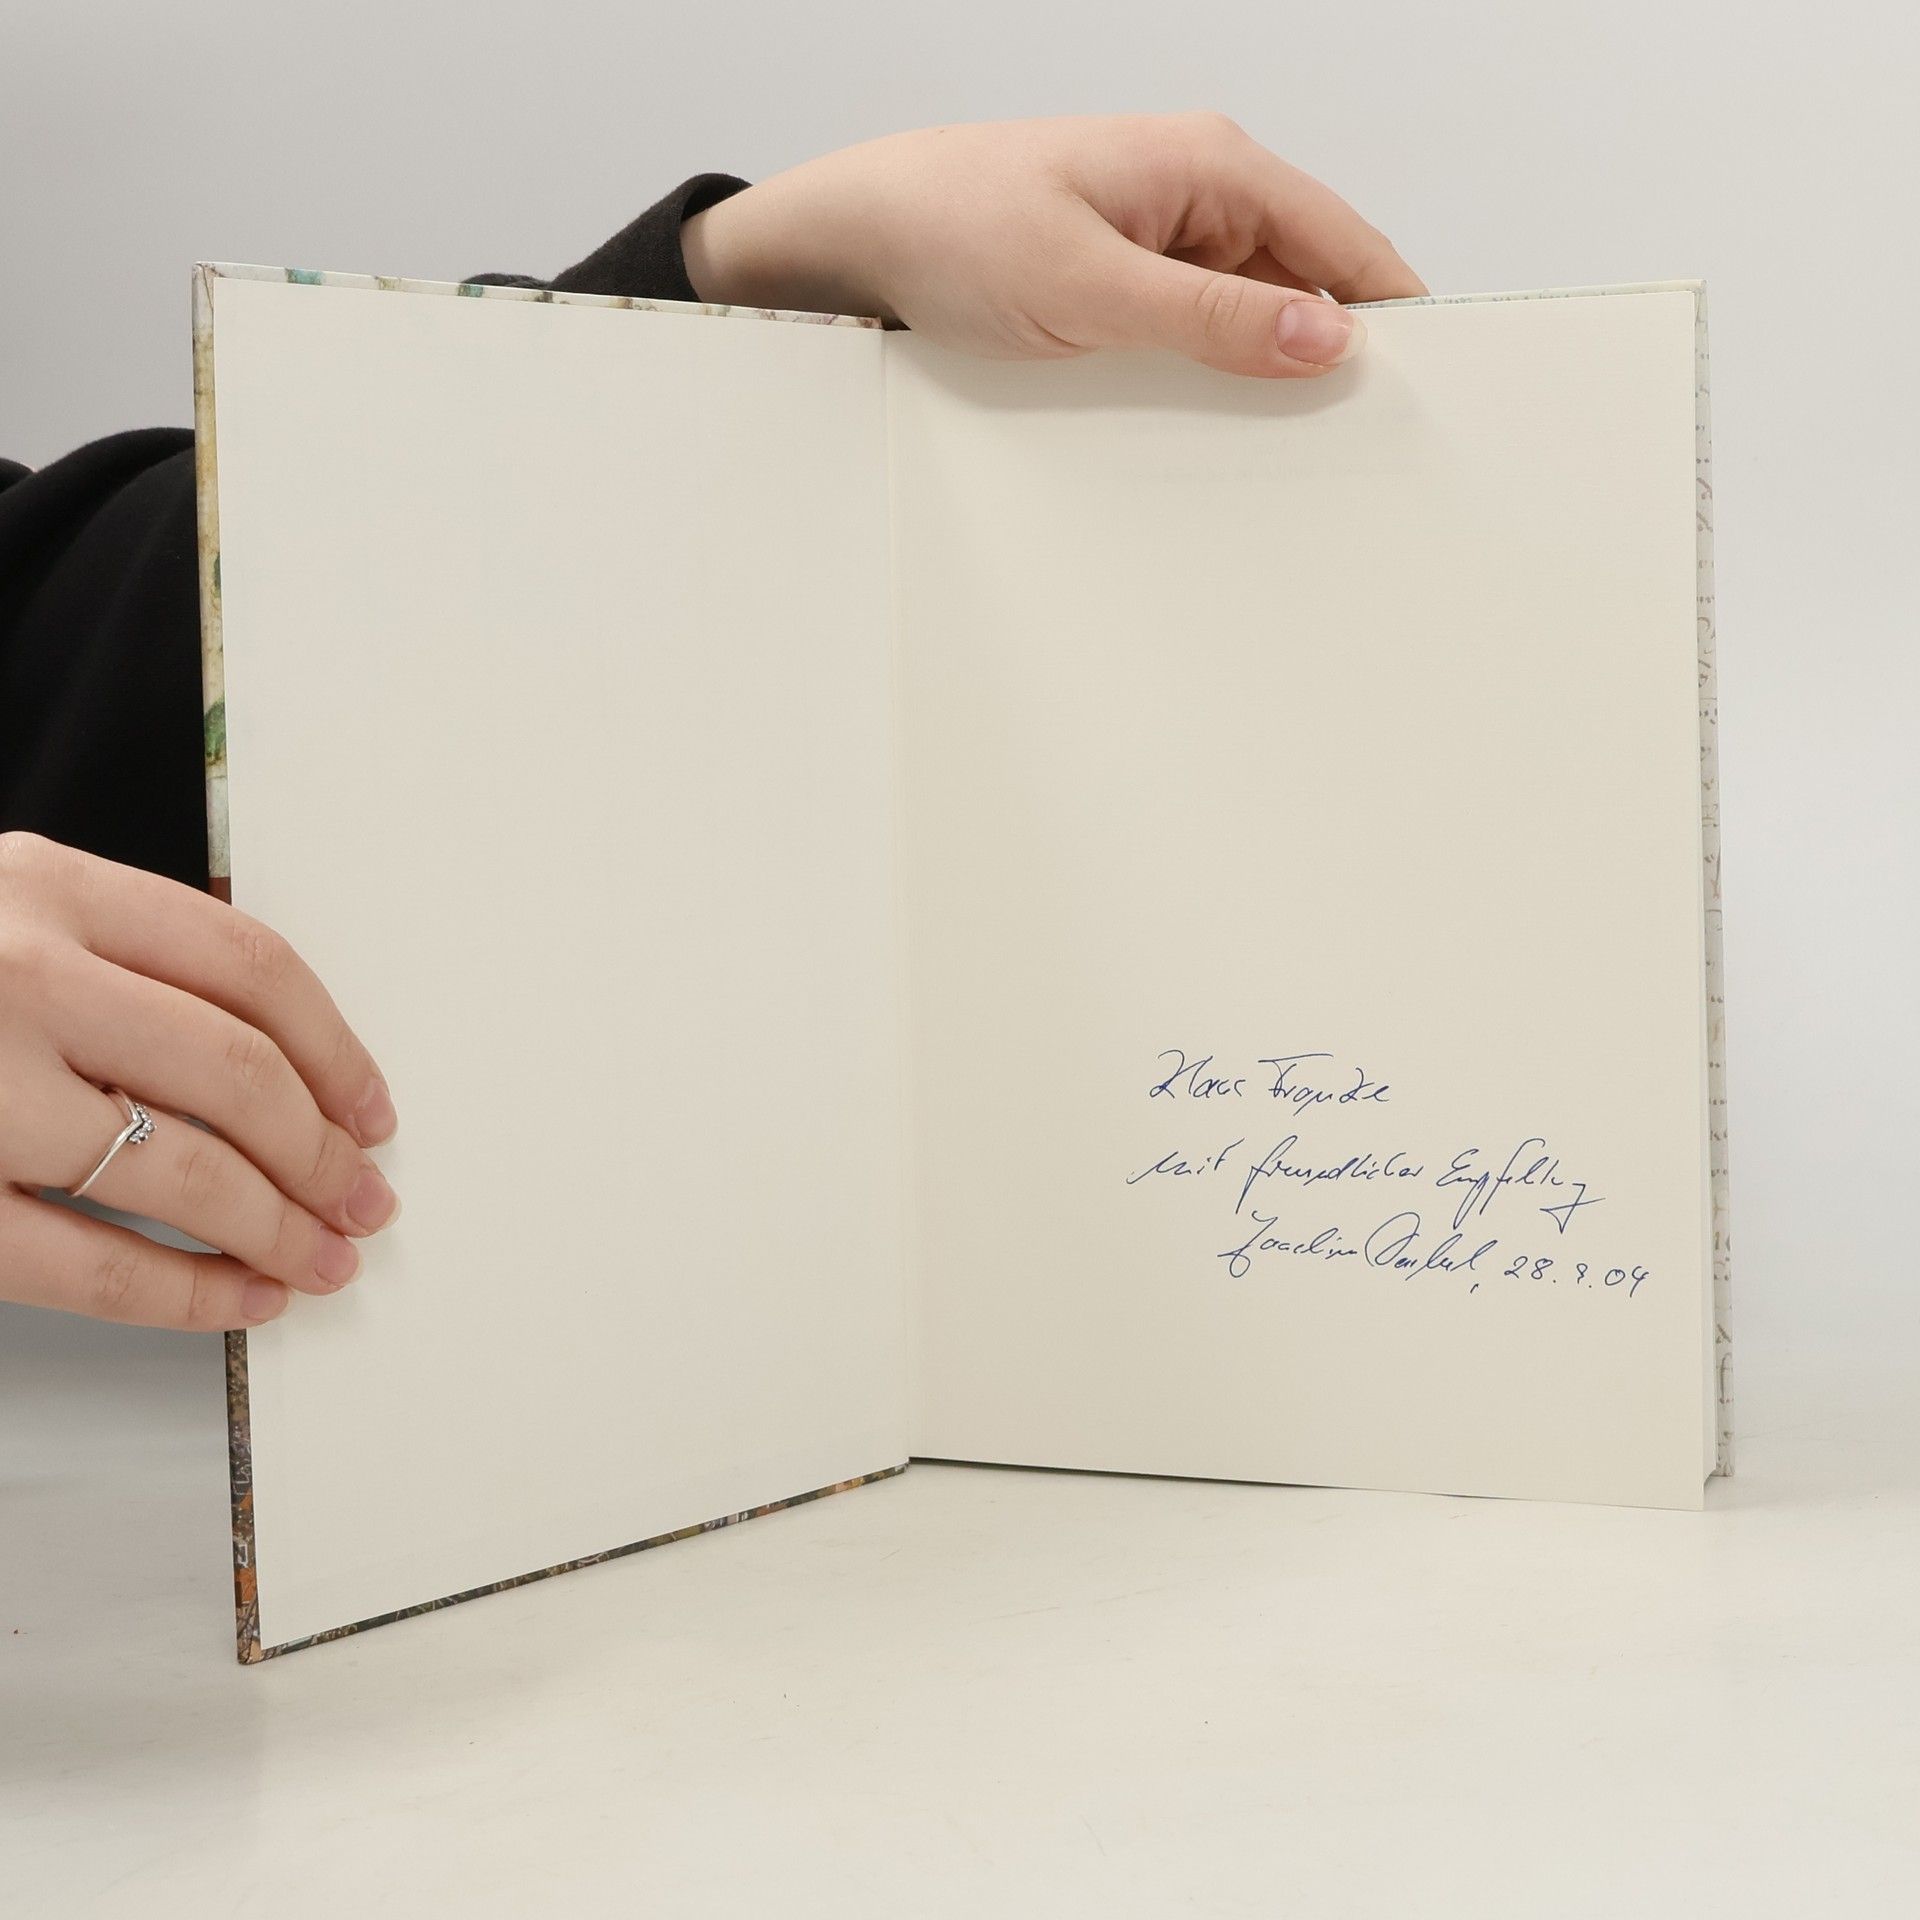 Klaus Franke
mit freundlicher Empfehlung
Joachim 28.9.04